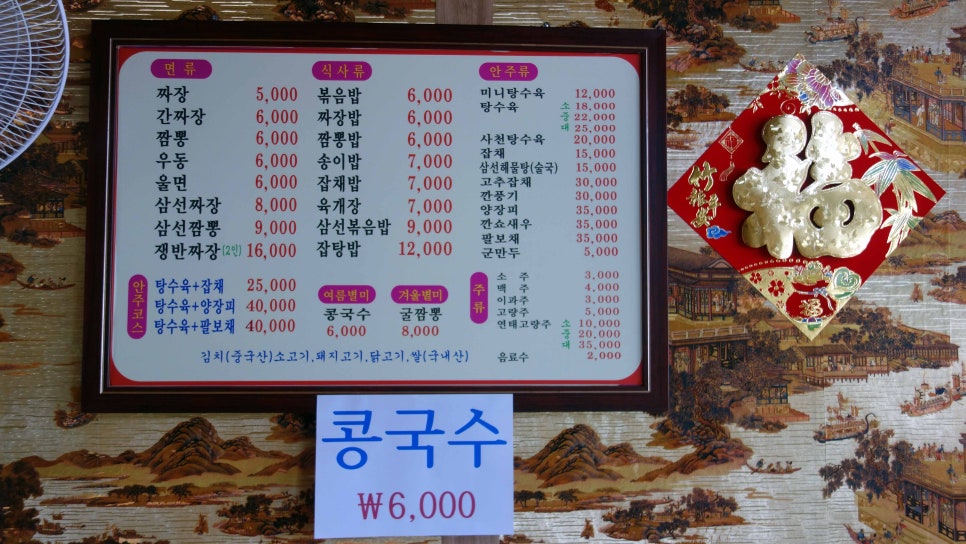 면류
짜장 5,000
간짜장 6,000
짬뽕 6,000
우동 6,000
울면 6,000
삼선짜장 8,000
삼선짬뽕 9,000
쟁반짜장(2인) 16,000
식사류
볶음밥 6,000
짜장밥 6,000
짬뽕밥 6,000
송이밥 7,000
잡채밥 7,000
육개장 7,000
삼선볶음밥 9,000
잡탕밥 12,000
안주류
미니탕수육 12,000
탕수육 소 18,000
중 22,000
대 25,000
사천탕수육 20,000
잡채 15,000
삼선해물탕(술국) 15,000
고추잡채 30,000
깐풍기 30,000
양장피 35,000
깐쇼새우 35,000
팔보채 35,000
군만두 5,000
안주코스
탕수육+잡채 25,000
탕수육+양장피 40,000
탕수육+팔보채 40,000
여름별미
콩국수
6,000
겨울별미
굴짬뽕
8,000
주류
소주 3,000
맥주 4,000
이과주 3,000
고량주 5,000
연태고량주 소 10,000
중 20,000
대 35,000
음료수 2,000
김치(중국산)소고기,돼지고기,닭고기,쌀(국내산)
콩국수
₩6,000
福